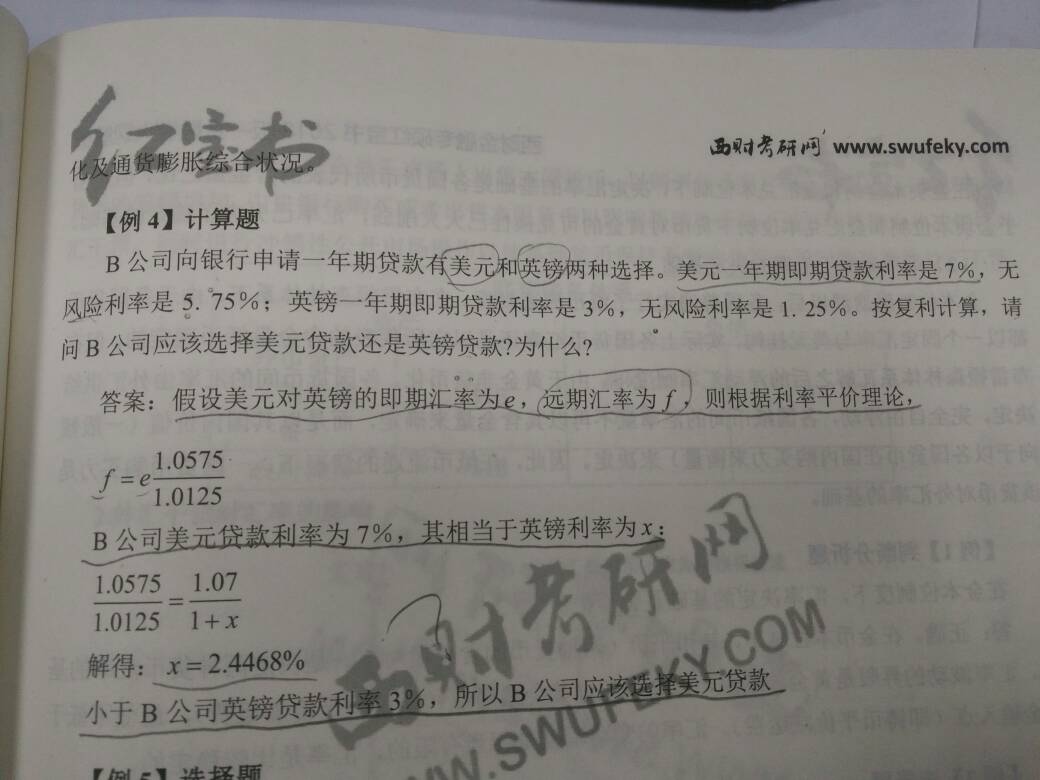 红宝书
西财考研网 www.swufeky.com
化及通货膨胀综合状况。
【例4】计算题
B公司向银行申请一年期贷款有美元和英镑两种选择。美元一年期即期贷款利率是7%，无
风险利率是5.75%；英镑一年期即期贷款利率是3%，无风险利率是1.25%。按复利计算，请
问B公司应该选择美元贷款还是英镑贷款?为什么?
答案：假设美元对英镑的即期汇率为e，远期汇率为f，则根据利率平价理论，
f=e 1.0575/1.0125
B公司美元贷款利率为7%，其相当于英镑利率为x：
1.0575/1.0125=1.07/1+x
解得：x=2.4468%
小于B公司英镑贷款利率3%，所以B公司应该选择美元贷款
西财考研网
WWW.SWUFEKY.COM
【例5】选择题